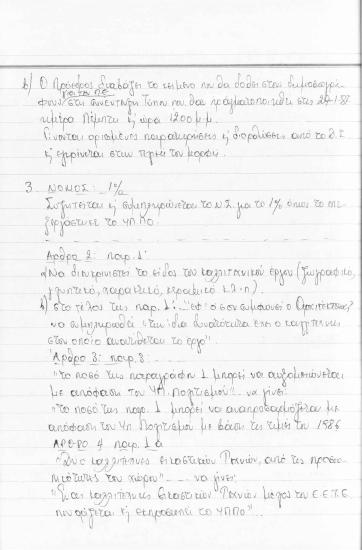 β) Ο Πρόεδρος διαβάζει το κείμενο που θα δοθεί στους δημοσιογρά
φους στη συνέντευξη Τύπου που θα πραγματοποιηθεί στις 29-1-87
ημέρα Πέμπτη κ ώρα 12.00 μ.μ.
Γίνονται ορισμένες παρατηρήσεις κ διορθώσεις από το Δ.Σ
κ εγκρίνεται στην τελική του μορφή.
3. ΝΟΜΟΣ: 1%
Συζητείται κ συμπληρώνεται το Ν.Σ. για το 1% όπως το επε
ξεργάστηκε το ΥΠ.ΠΟ.
Άρθρο 2: παρ. 1
α) Να διευκρινιστεί το είδος του καλλιτεχνικού έργου (ζωγραφικό,
γλυπτικό, χαρακτικό, κεραμικό κ.λ.π.).
β) στο τέλος της παρ. 1: "εφ' όσον συμφωνεί ο Αρχιτέκτονας"
να συμπληρωθεί: "την ίδια δυνατότητα έχει ο καλλιτέχνης
στον οποίο ανατίθεται το έργο"
Άρθρο 3: παρ. 3:
"το ποσό της παραγράφου 1 μπορεί να αυξομειώνεται
με απόφαση του Υπ. Πολιτισμού" .. να γίνει:
"το ποσό της παρ. 1 μπορεί να αναπροσαρμόζεται με
απόφαση του Υπ. Πολιτισμού με βάση τις τιμές του 1986
ΑΡΘΡΟ 4 παρ. 1α
"Δύο καλλιτέχνες εικαστικών Τεχνών, από τις προσω
πικότητες του χώρου" ... να γίνει:
"Ένας καλλιτέχνης εικαστικών Τεχνών μέλος του Ε.Ε.Τ.Ε
που ορίζεται κ εκπροσωπεί το ΥΠΠΟ"..